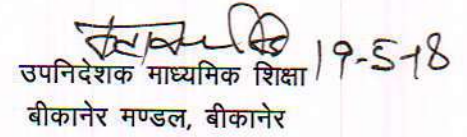 19-5-18
उपनिदेशक माध्यमिक शिक्षा
बीकानेर मण्डल, बीकानेर